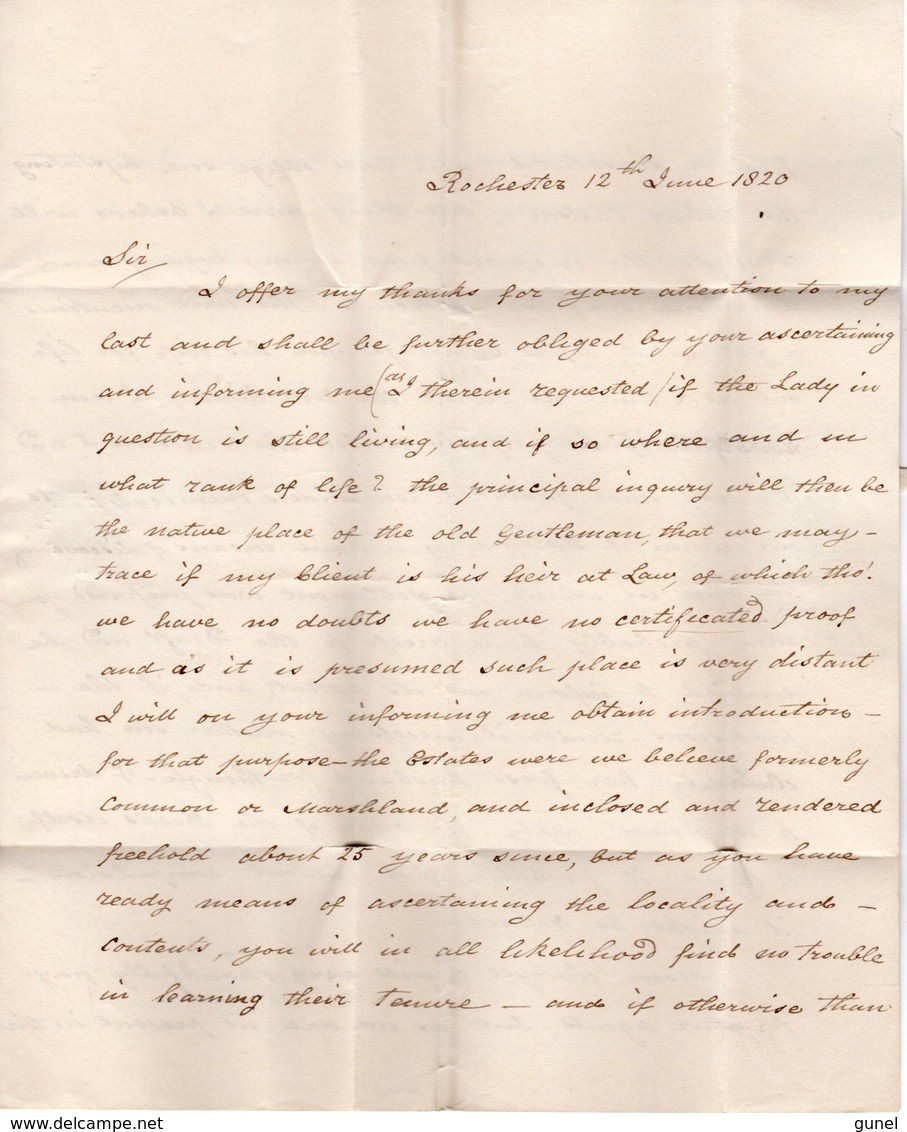 Rochester 12th June 1820
Sir
I offer my thanks for your attention to my
last and shall be further obliged by your ascertaining
and informing me (as I therein requested) if the Lady in
question is still living, and if so where and in
what rank of life? the principal inquiry will then be
the native place of the old Gentleman, that we may –
trace if my Client is his heir at Law, of which tho'.
we have no doubts we have no certificated proof
and as it is presumed such place is very distant
I will on your informing me obtain introduction –
for that purpose – the Estates were we believe formerly
Common or Marshland, and inclosed and rendered
freehold about 25 years since, but as you have
ready means of ascertaining the locality and –
contents, you will in all likelihood find no trouble
in learning their tenure – and if otherwise than
www.delcampe.net
gunel